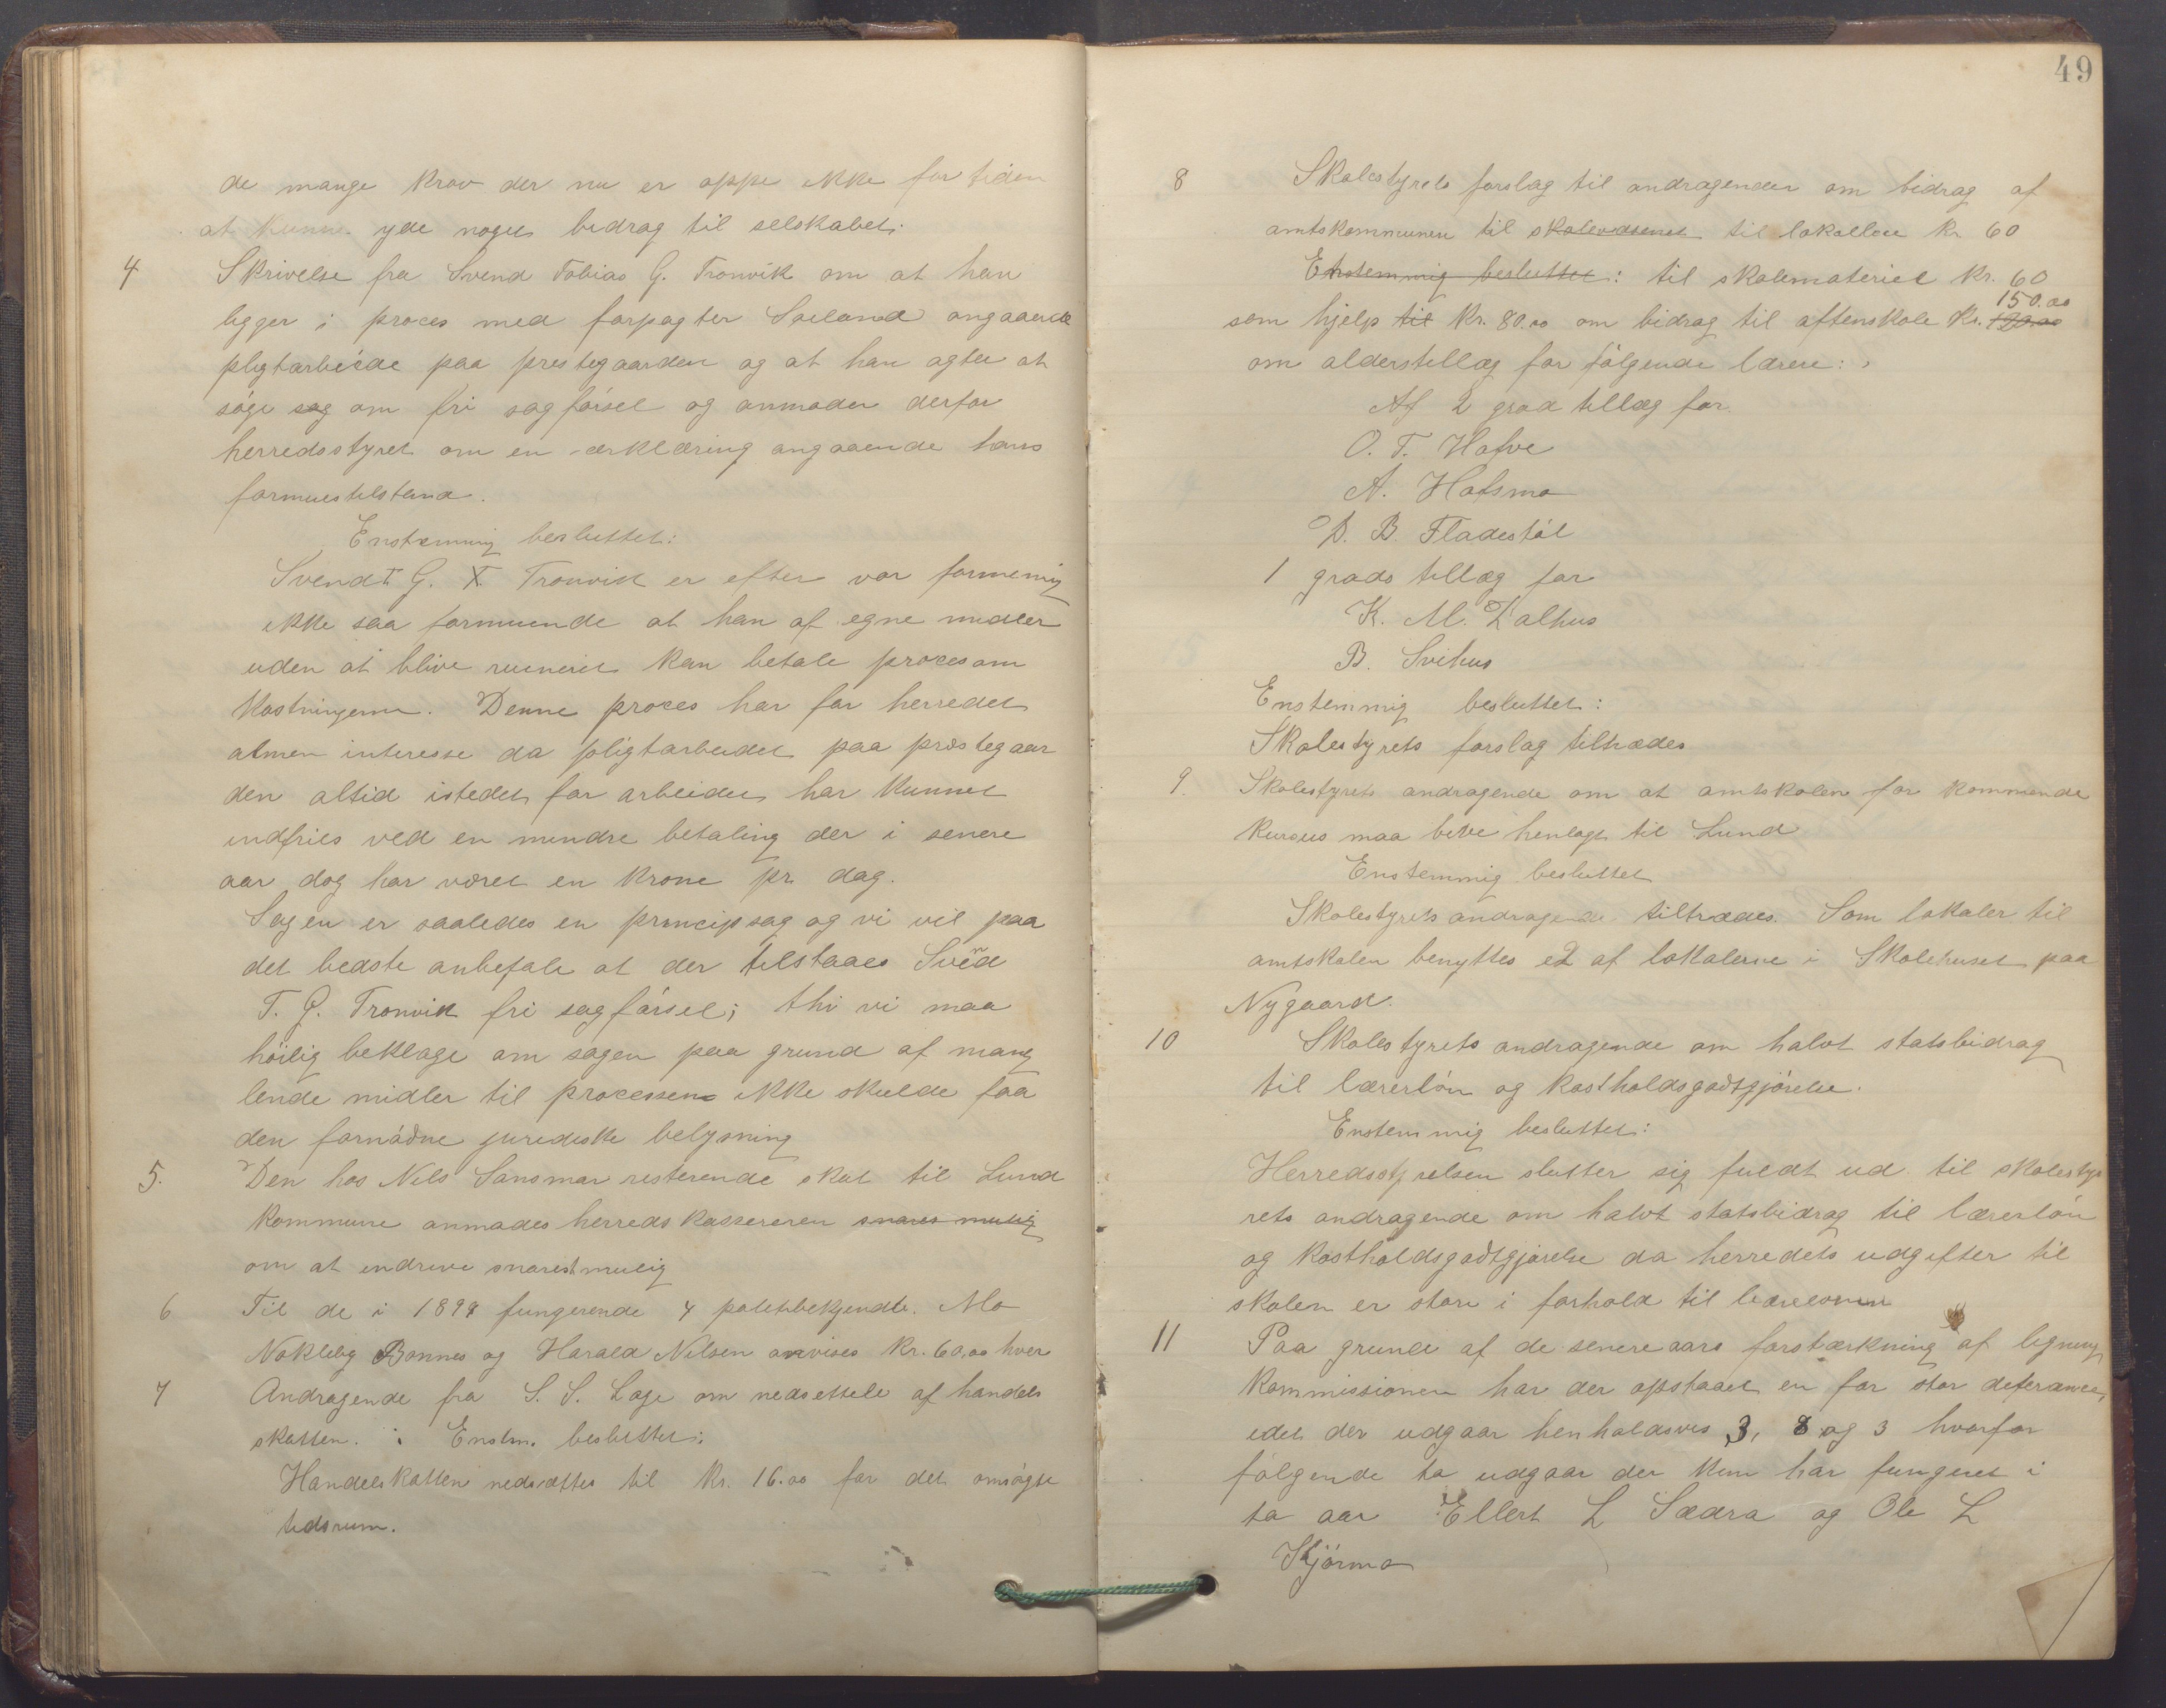 de mange krav der nu er oppe ikke for tiden
at kunne yde noget bidrag til selskabet.
4 Skrivelse fra Svend Tobias G. Tronvik om at han
ligger i proces med forpagter Sæland angaaende
pligtarbeide paa prestegaarden og at han agter at
søge sag om fri sagførsel og anmoder derfor
herredsstyret om en erklæring angaaende hans
formuestilstand.
Enstemmig besluttet:
Svend T G. T. Tronvik er efter vor formening
ikke saa formuende at han af egne midler
uden at blive ruineret kan betale procesom
kostningerne. Denne proces har for herredet
almen interesse da pligtarbeidet paa præstegaar
den altid istedet for arbeidet har kunnet
indfries ved en mindre betaling der i senere
aar dog har været en krone pr. dag.
Sagen er saaledes en principsag og vi vil paa
det bedste anbefale at der tilstaaes Svend
T. G. Tronvik fri sagførsel; thi vi maa
høilig beklage om sagen paa grund af mang
lende midler til processen ikke skulde faa
den fornødne juridiske belysning
5. Den hos Nils Sansmar resterende skat til Lund
kommune anmodes herredskassereren snares mulig
om at indrive snarest mulig
6 Til de i 1898 fungerende 4 politibetjendte. Mo
Nokleby Bonnes og Harald Nilsen anvises kr. 60,00 hver
7 Andragende fra S. S. Lage om nedsettele af handels
skatten. : Enstm. besluttet:
Handelskatten nedsættes til kr. 16.00 for det omsøgte
tidsrum.
49
8 Skolestyrets forslag til andragender om bidrag af
amtskommunen til skolevæsenet til lokaller kr. 60
Enstemmig besluttet: til skolemateriel kr. 60
150.00
som hjelp til kr. 80.00 om bidrag til aftenskole kr.
om alderstillæg for følgende lærere:
Af 2 grad tillæg for.
O. T. Hafve
A. Hafsmo
D. B. Fladestøl
1 grads tillæg for
K. M. Dalhus
B. Svihus
Enstemmig besluttet:
Skolestyrets forslag tiltrædes
9. Skolestyrets andragende om at amtskolen for kommende
kursus maa blive henlagt til Lund
Enstemmig besluttet
Skolestyrets andragende tiltrædes. Som lokaler til
amtskolen benyttes et af lokalerne i Skolehuset paa
Nygaard.
10 Skolestyrets andragende om halvt statsbidrag
til lærerløn og kostholdsgodtgjørelse.
Enstemmig besluttet:
Herredsstyrelsen slutter sig fuldt ud til skolesty
rets andragende om halvt statsbidrag til lærerløn
og kostholdsgodtgjørelse da herredets udgifter til
skolen er store i forhold til
11 Paa grund af de senere aars forstærkning af ligning
kommissionen har der opstaaet en for stor deferance,
idet der udgaar henholdsvis 3, 8 og 3 hvorfor
følgende to udgaar der kun har fungeret i
to aar Ellert L Sædra og Ole L
Kjørmo